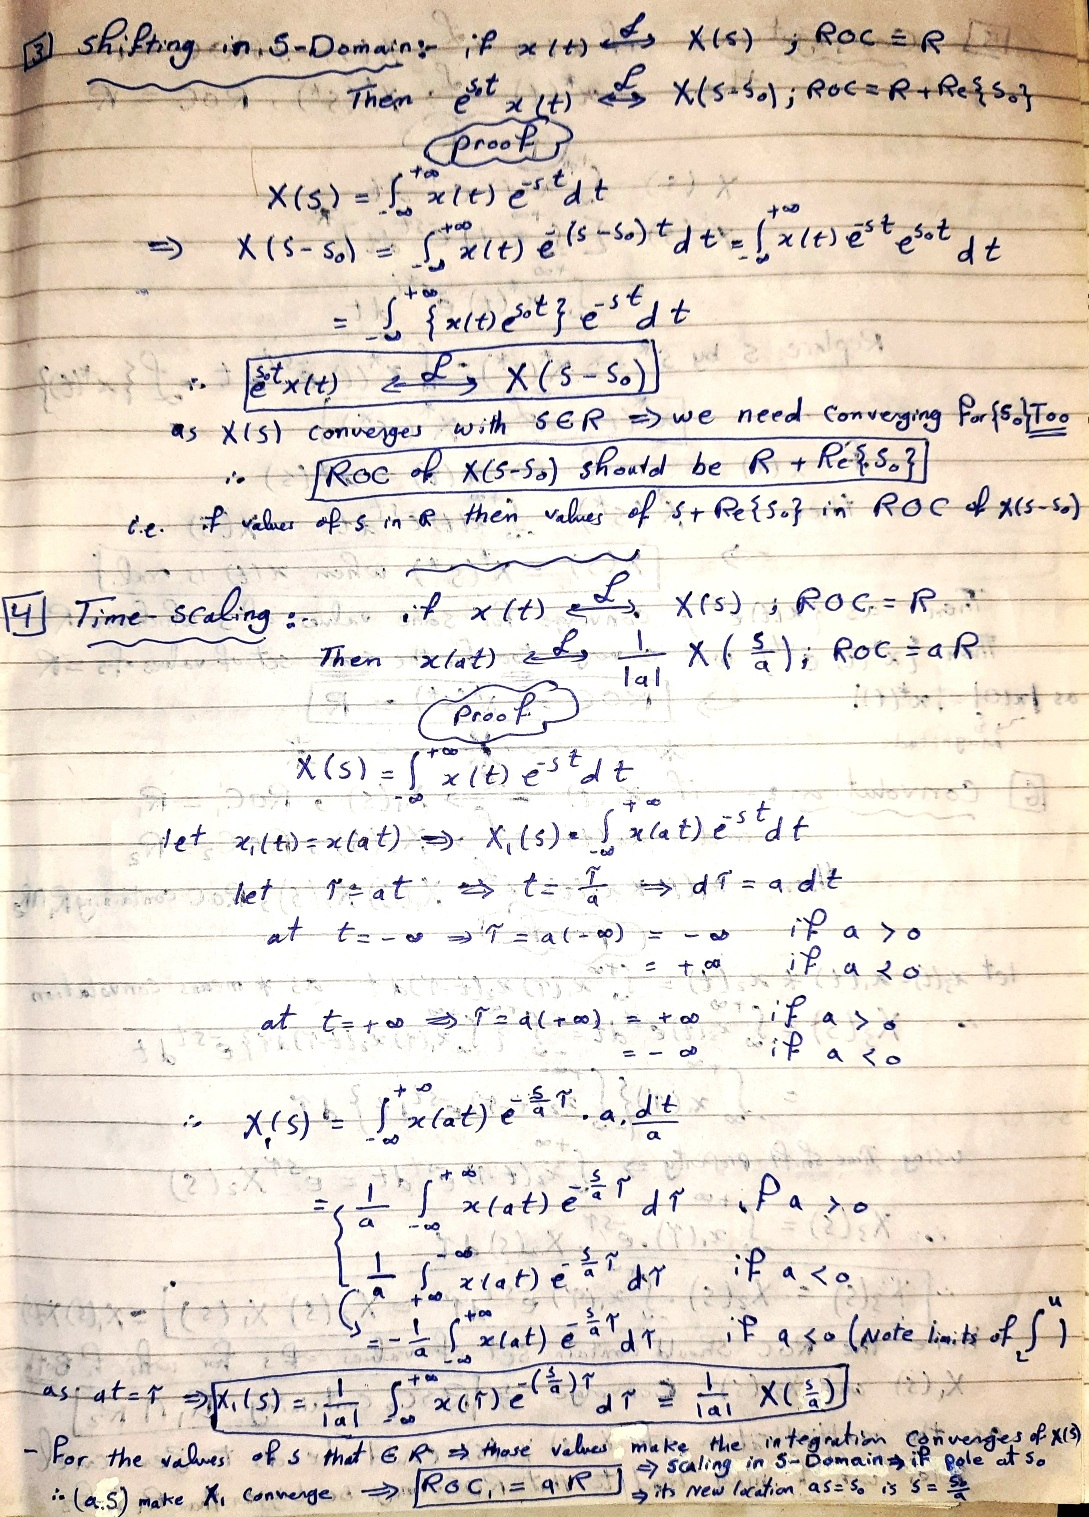 [3] Shifting in S-Domain:- if x(t) <-L-> X(s) ; ROC = R
Then e^{s₀t} x(t) <-L-> X(s-s₀) ; ROC = R + Re{s₀}
Proof
X(s) = ∫_{-∞}^{+∞} x(t) e^{-st} dt
⇒ X(s-s₀) = ∫_{-∞}^{+∞} x(t) e^{-(s-s₀)t} dt = ∫_{-∞}^{+∞} x(t) e^{-st} e^{s₀t} dt
= ∫_{-∞}^{+∞} {x(t) e^{s₀t}} e^{-st} dt
∴ e^{s₀t} x(t) <-L-> X(s-s₀)
as X(s) converges with s∈R ⇒ we need converging for {s₀} Too
∴ ROC of X(s-s₀) should be R + Re{s₀}
i.e. if values of s in R then values of s+Re{s₀} in ROC of X(s-s₀)
[4] Time-scaling :- if x(t) <-L-> X(s) ; ROC = R
Then x(at) <-L-> 1/|a| X(s/a) ; ROC = aR
Proof
X(s) = ∫_{-∞}^{+∞} x(t) e^{-st} dt
let x₁(t) = x(at) ⇒ X₁(s) = ∫_{-∞}^{+∞} x(at) e^{-st} dt
let τ = at ⇒ t = τ/a ⇒ dτ = a dt
at t = -∞ ⇒ τ = a(-∞) = -∞ if a > 0
= +∞ if a < 0
at t = +∞ ⇒ τ = a(+∞) = +∞ if a > 0
= -∞ if a < 0
∴ X₁(s) = ∫_{-∞}^{+∞} x(at) e^{-(s/a)τ} . a . dt/a
= { 1/a ∫_{-∞}^{+∞} x(at) e^{-(s/a)τ} dτ if a > 0
1/a ∫_{+∞}^{-∞} x(at) e^{-(s/a)τ} dτ if a < 0
= -1/a ∫_{-∞}^{+∞} x(at) e^{-(s/a)τ} dτ if a < 0 (Note limits of ∫_{L}^{u})
as at = τ ⇒ X₁(s) = 1/|a| ∫_{-∞}^{+∞} x(τ) e^{-(s/a)τ} dτ = 1/|a| X(s/a)
- for the values of s that ∈ R ⇒ those values make the integration converges of X(s)
⇒ scaling in S-Domain ⇒ if pole at s₀
∴ (a.s) make X₁ converge ⇒ ROC₁ = aR ⇒ its new location as = s₀ is s = s₀/a